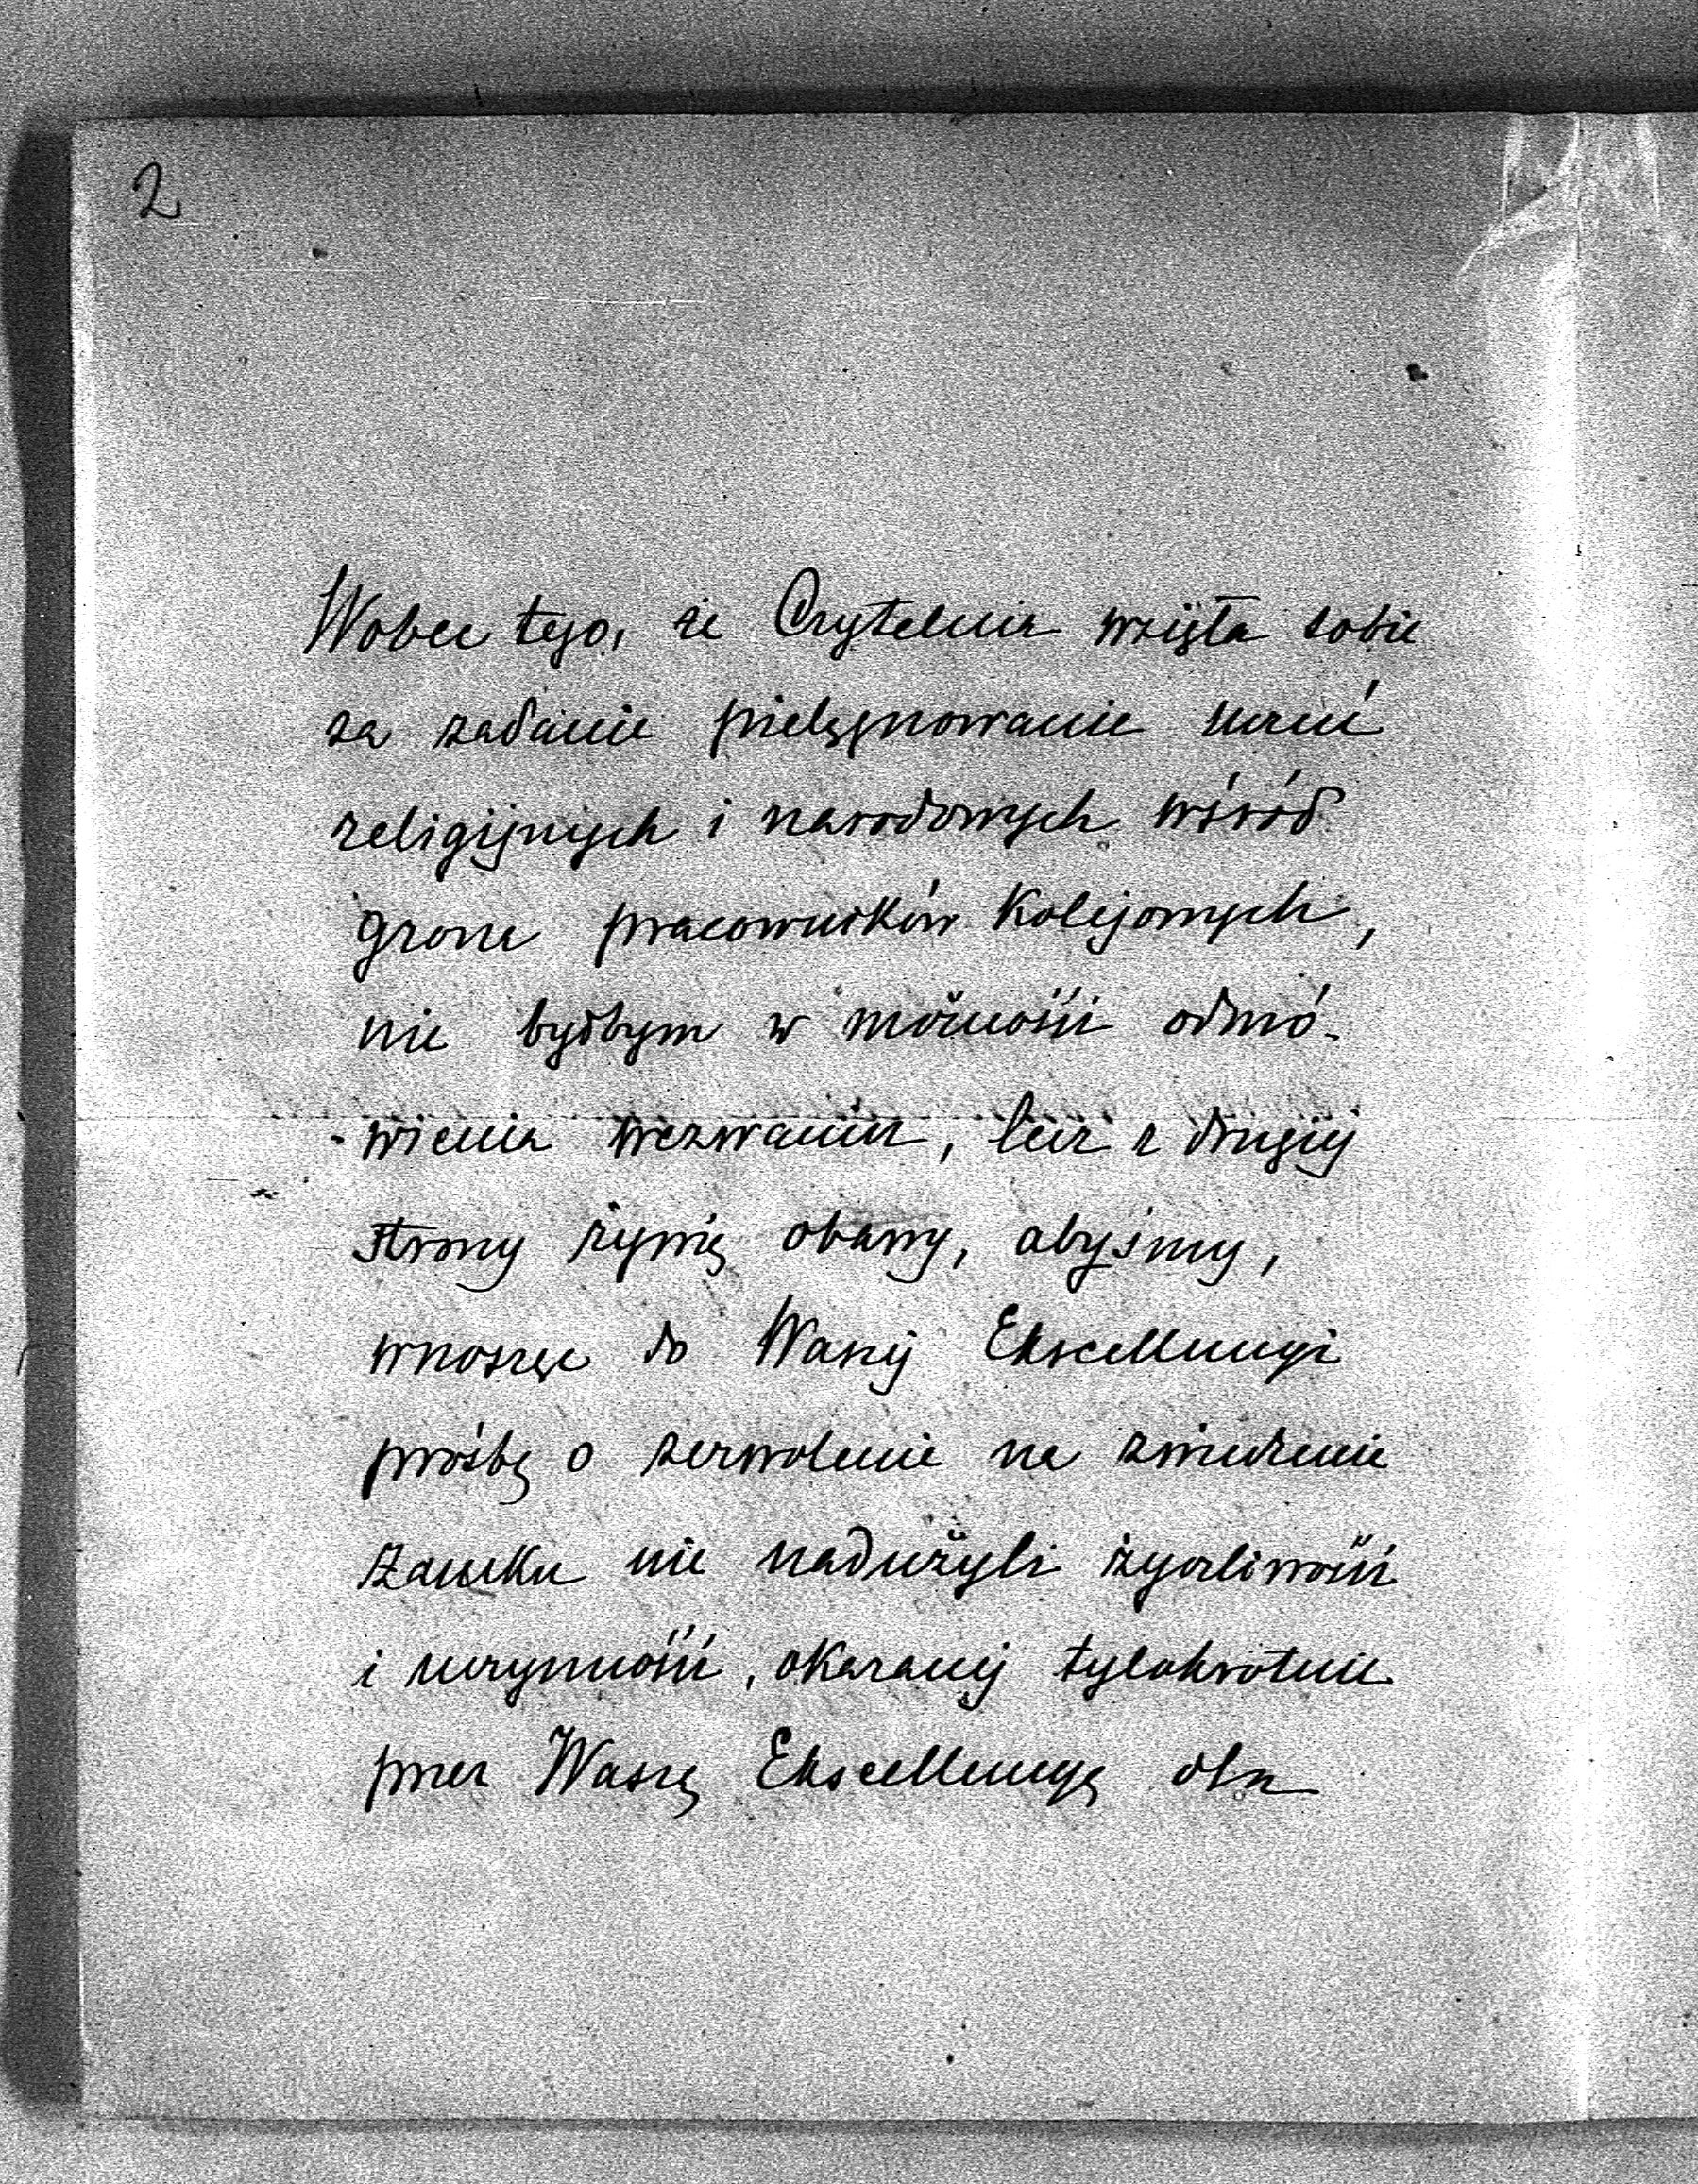 2
Wobec tego, że Czytelnia wzięła sobie
za zadanie pielęgnowanie uczuć
religijnych i narodowych wśród
grona pracowników kolejowych,
nie byłbym w możności odmó-
-wienia wezwaniu, lecz z drugiej
strony żywię obawy, abyśmy,
wnosząc do Waszej Ekscellencyi
prośbę o zezwolenie na zwiedzenie
zamku nie nadużyli życzliwości
i uczynności, okazanej tylokrotnie
przez Waszą Ekscellencyę dla